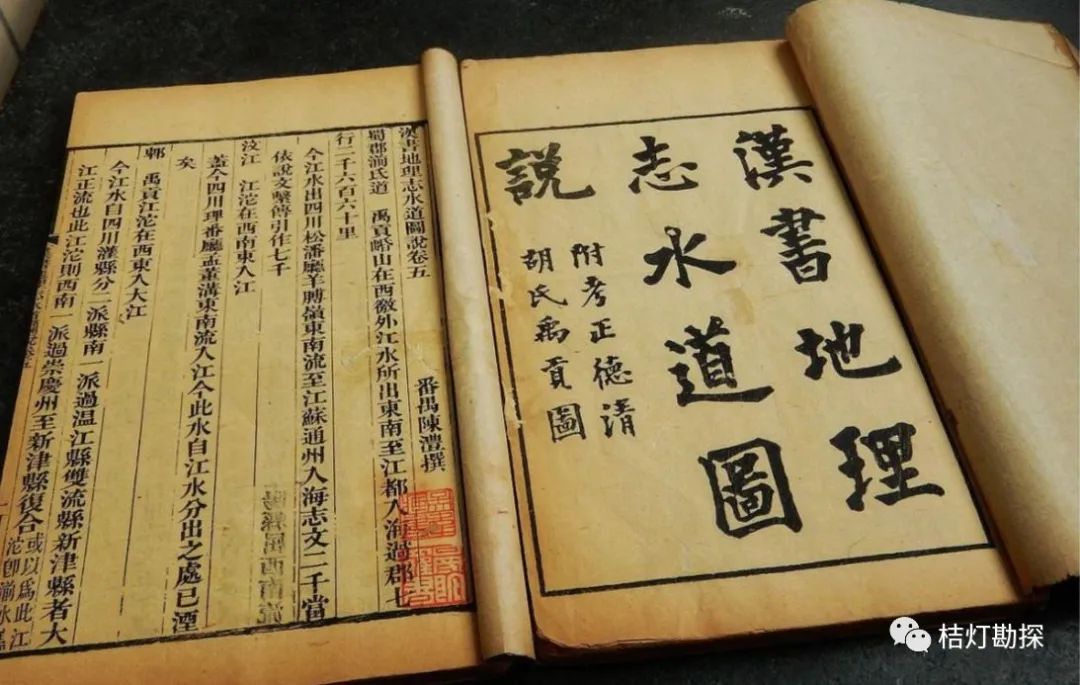 漢書地理
志水道圖
說
附考正德清
胡氏禹貢圖
漢書地理志水道圖說卷五
番禺陳澧撰
蜀郡湔氏道 禹貢崏山在西徼外江水所出東南至江都入海過郡七
行二千六百六十里
今江水出四川松潘廳羊膊嶺東南流至江蘇通州入海志文二千當
依說文繫傳引作七千
汶江 江沱在西南東入江
蓋今四川理番廳孟董溝東南流入江今此水自江水分出之處已湮
矣
郫 禹貢江沱在西東入大江
今江水自四川灌縣分一派縣南一派過温江縣雙流縣新津縣者大
江正流也此江沱則西南一派過崇慶州至新津縣復合或以爲此江
沱卽湔水
桔灯勘探